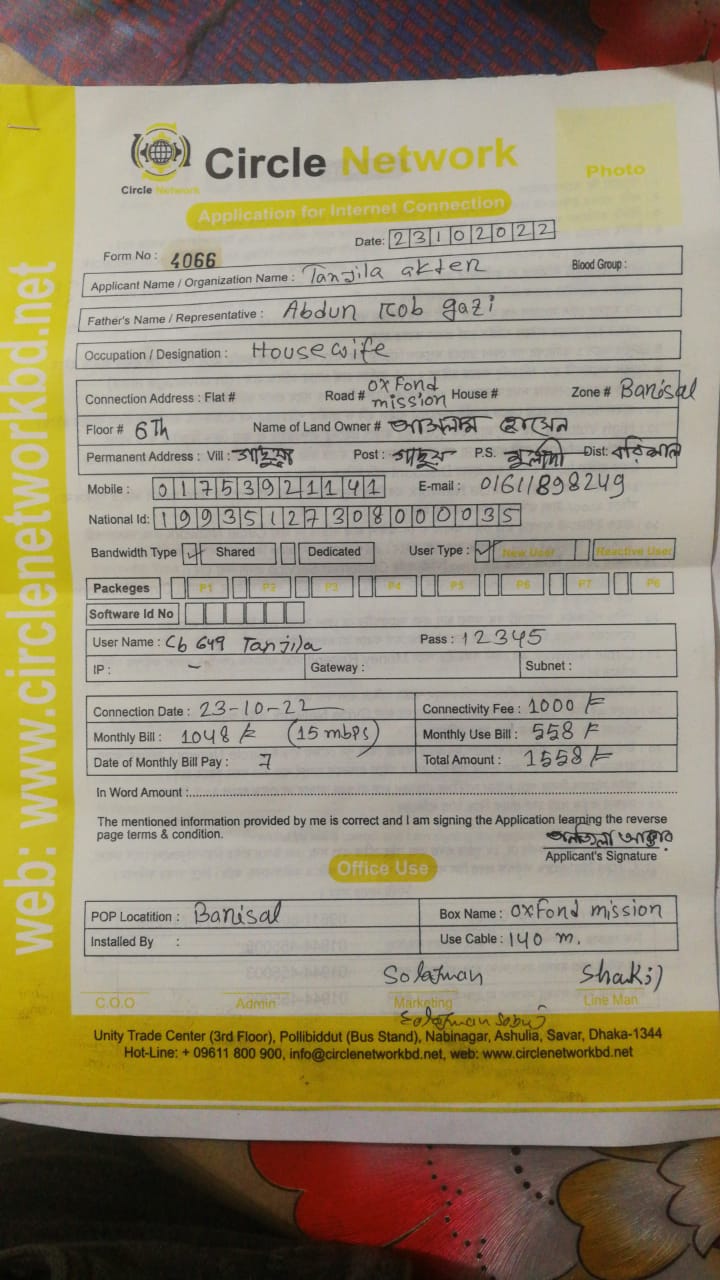 Circle Network
Circle Network
Photo
Application for Internet Connection
Date: 23102022
Form No : 4066
Applicant Name / Organization Name : Tanjila akter Blood Group :
Father's Name / Representative : Abdur Rob gazi
Occupation / Designation : Housewife
Connection Address : Flat # Road # oxFord mission House # Zone # Barisal
Floor # 6Th Name of Land Owner # হোসেন
Permanent Address : Vill : Post : P.S. মুলাদী Dist: বরিশাল
Mobile : 01753921141 E-mail : 01611898249
National Id: 19935127308000035
Bandwidth Type ✓ Shared Dedicated User Type : ✓ New User Reactive User
Packeges P1 P2 P3 P4 P5 P6 P7 P8
Software Id No
User Name : Cb 649 Tanjila Pass : 12345
IP : – Gateway : Subnet :
Connection Date : 23-10-22 Connectivity Fee : 1000/=
Monthly Bill : 1048/= (15 mbps) Monthly Use Bill : 558/=
Date of Monthly Bill Pay : 7 Total Amount : 1558/=
In Word Amount :
The mentioned information provided by me is correct and I am signing the Application learning the reverse
page terms & condition.
আক্তার
Applicant's Signature
Office Use
POP Locatition : Barisal Box Name : oxFord mission
Installed By : Use Cable : 140 m.
Solaiman Shakil
C.O.O Admin Marketing Line Man
Solaiman Sabuj
Unity Trade Center (3rd Floor), Pollibiddut (Bus Stand), Nabinagar, Ashulia, Savar, Dhaka-1344
Hot-Line: + 09611 800 900, info@circlenetworkbd.net, web: www.circlenetworkbd.net
web: www.circlenetworkbd.net